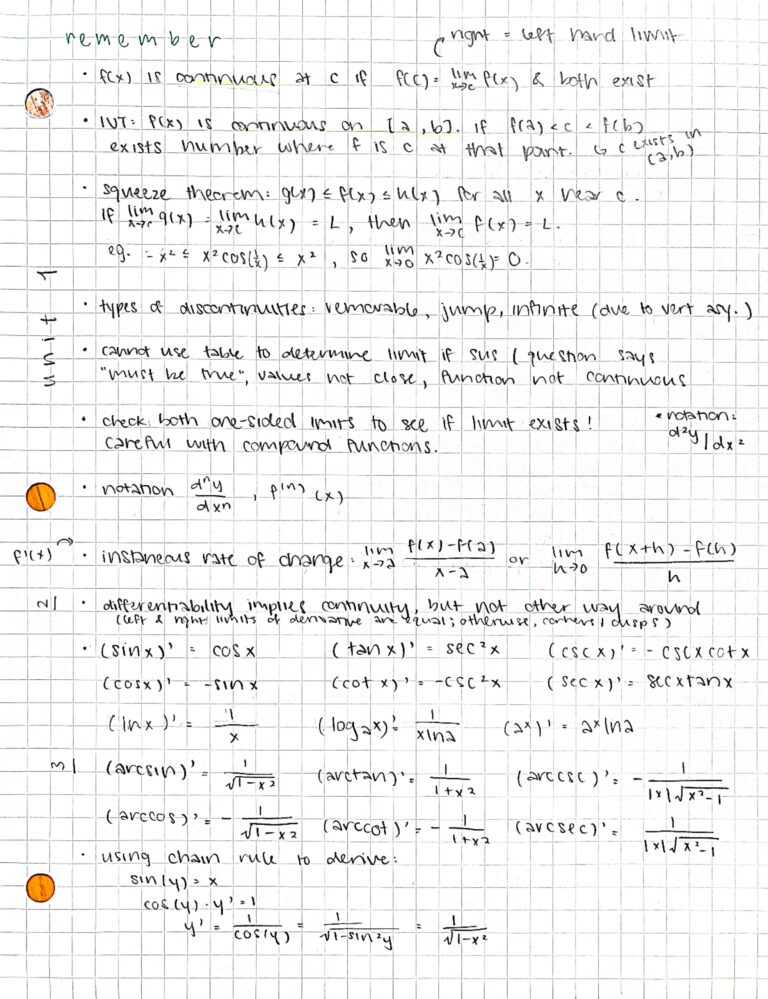 remember
right = left hand limit
• f(x) is continuous at c if f(c) = lim x→c f(x) & both exist
• IVT: f(x) is continuous on [a,b]. if f(a) < c < f(b)
exists number where f is c at that point. ↳ c exists in (a,b)
• squeeze theorem: g(x) ≤ f(x) ≤ h(x) for all x near c.
If lim x→c g(x) = lim x→c h(x) = L, then lim x→c f(x) = L.
eg. -x² ≤ x²cos(1/x) ≤ x², so lim x→0 x²cos(1/x) = 0.
• types of discontinuities: removable, jump, infinite (due to vert asy.)
• cannot use table to determine limit if sus / question says
"must be true", values not close, function not continuous
• check both one-sided limits to see if limit exists!
careful with compound functions.
* notation:
d²y/dx²
• notation dⁿy/dxⁿ, f⁽ⁿ⁾(x)
f'(x) → • instaneous rate of change: lim x→a (f(x)-f(a))/(x-a) or lim h→0 (f(x+h)-f(h))/h
• differentiability implies continuity, but not other way around
(left & right limits of derivative are equal; otherwise, corners / cusps)
• (sinx)' = cosx (tanx)' = sec²x (cscx)' = -cscxcotx
(cosx)' = -sinx (cotx)' = -csc²x (secx)' = secxtanx
(lnx)' = 1/x (logₐx)' = 1/(xlna) (aˣ)' = aˣlna
(arcsin)' = 1/√(1-x²) (arctan)' = 1/(1+x²) (arccsc)' = -1/(|x|√(x²-1))
(arccos)' = -1/√(1-x²) (arccot)' = -1/(1+x²) (arcsec)' = 1/(|x|√(x²-1))
• using chain rule to derive:
sin(y) = x
cos(y)·y' = 1
y' = 1/cos(y) = 1/√(1-sin²y) = 1/√(1-x²)